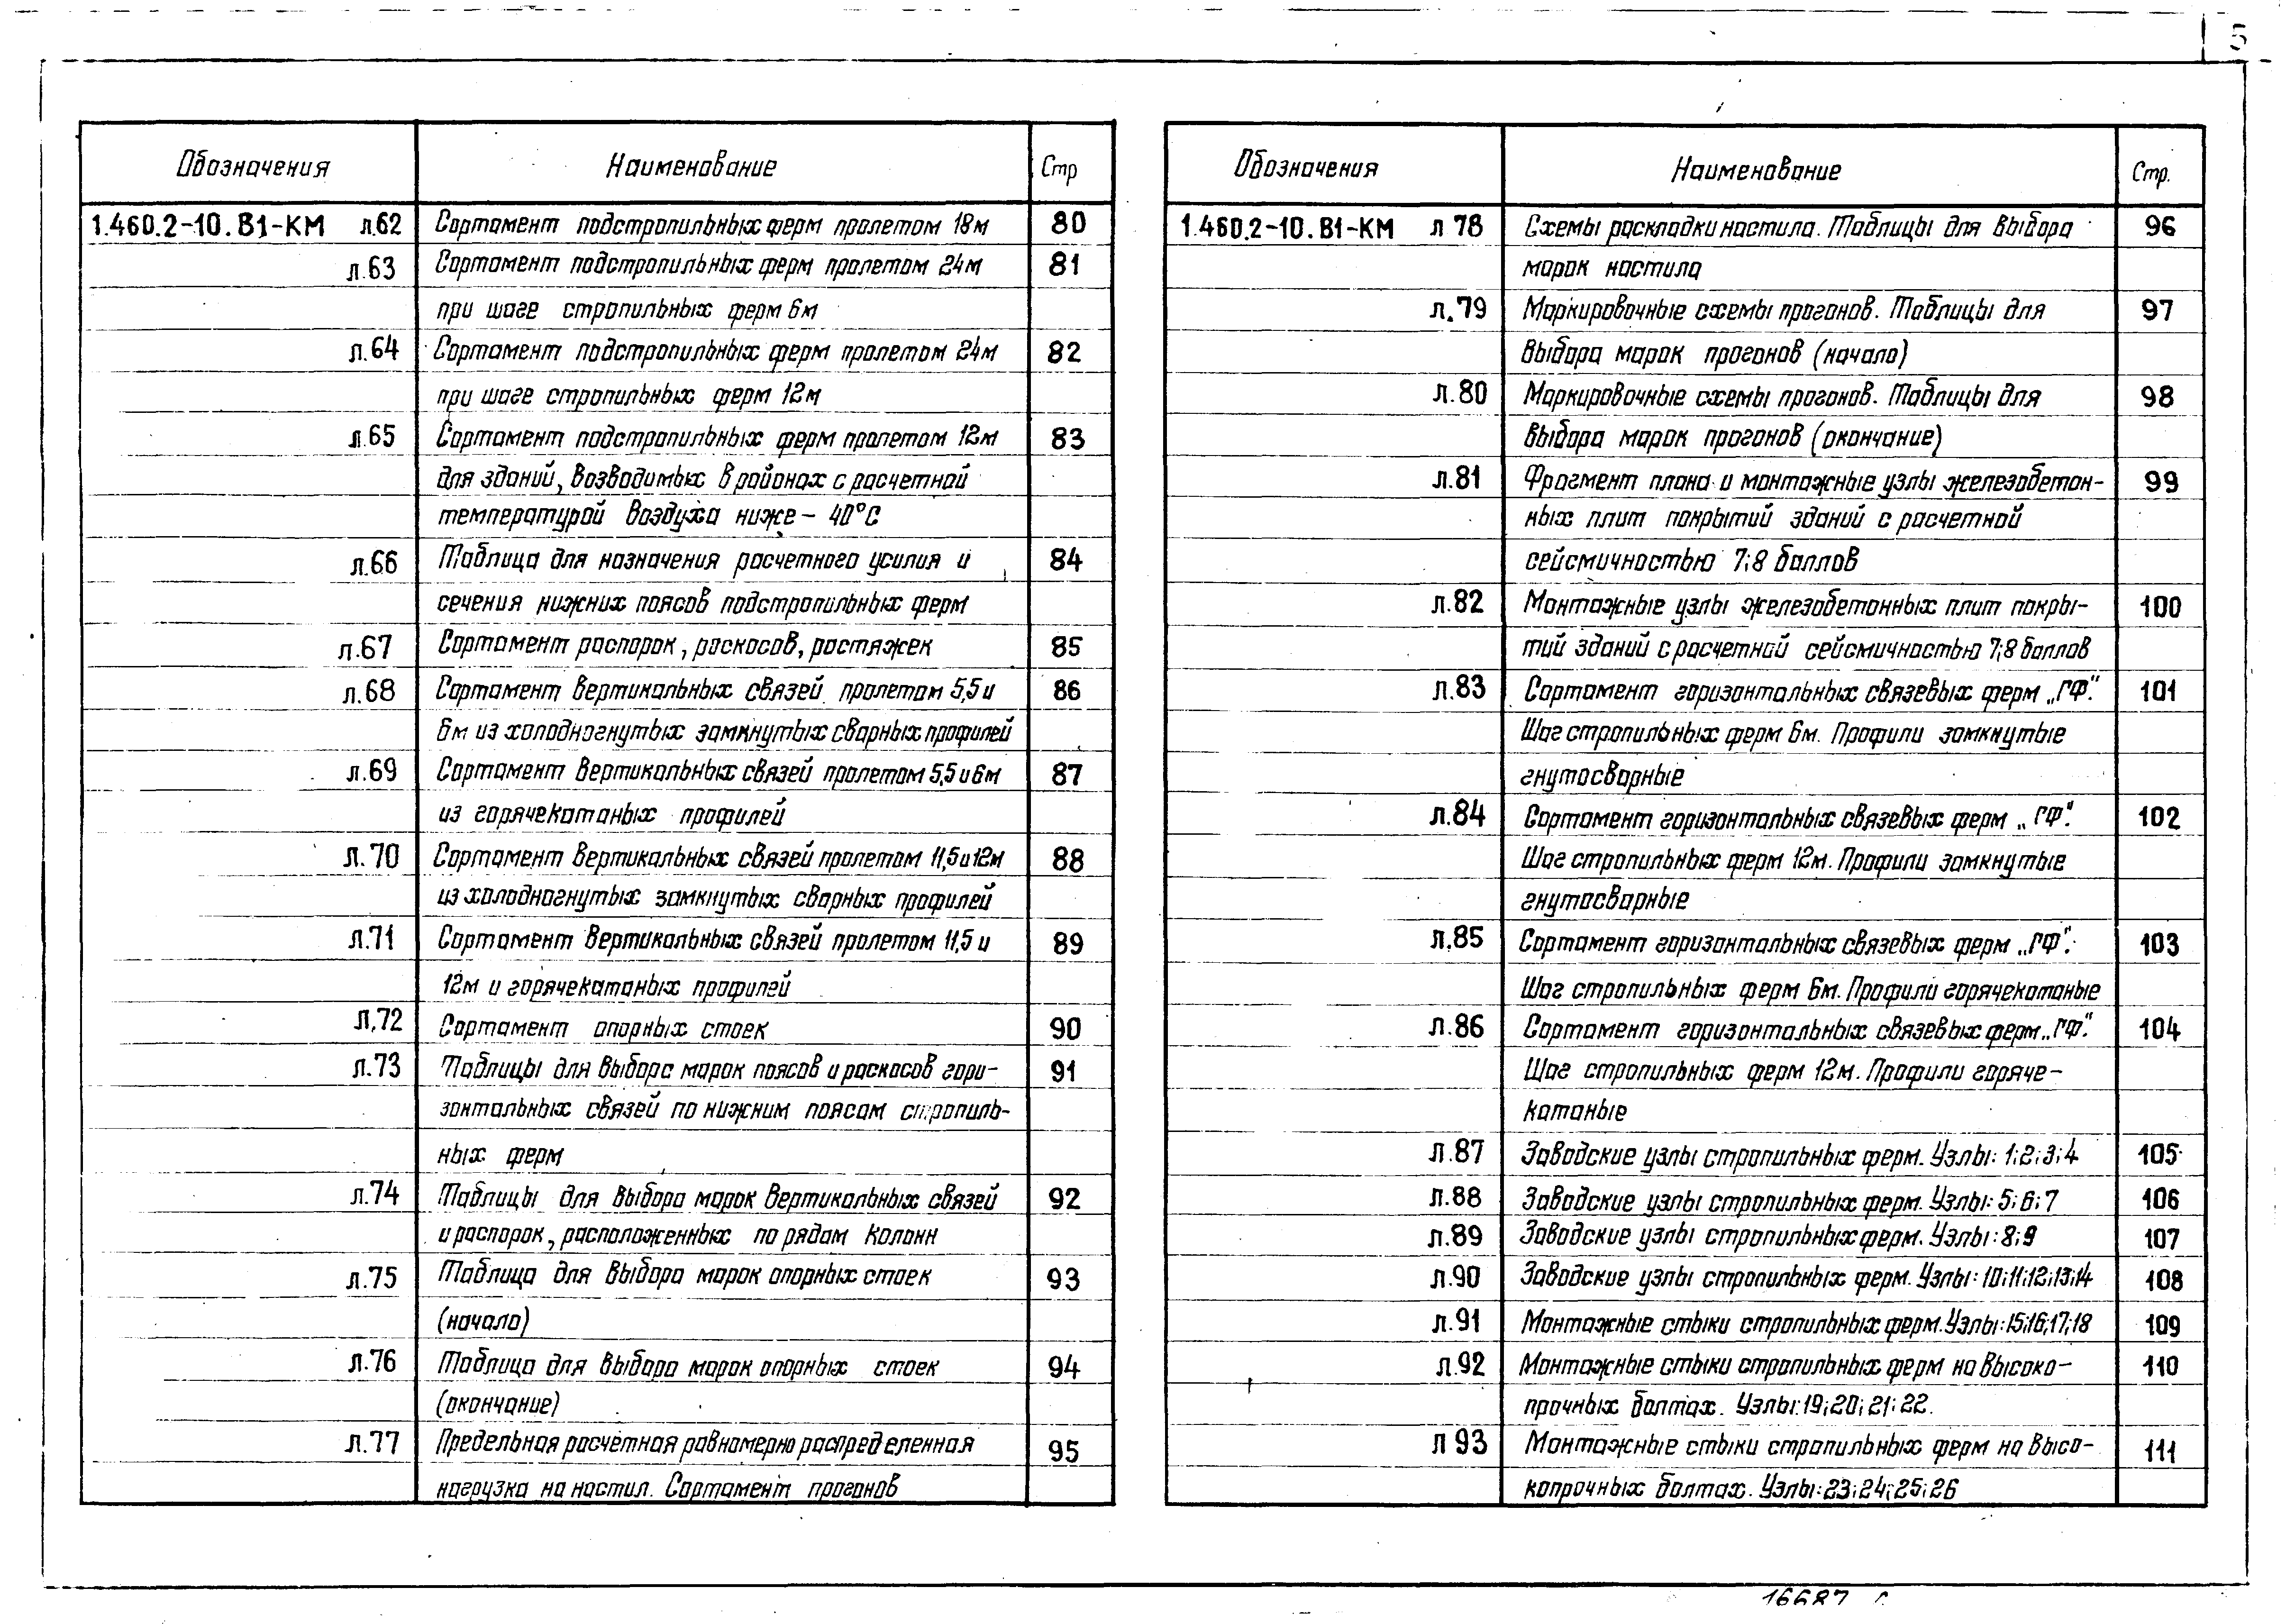 5
Обозначения Наименование Стр
1.460.2-10.В1-КМ л.62 Сортамент подстропильных ферм пролетом 18м 80
л.63 Сортамент подстропильных ферм пролетом 24м 81
при шаге стропильных ферм 6м
л.64 Сортамент подстропильных ферм пролетом 24м 82
при шаге стропильных ферм 12м
л.65 Сортамент подстропильных ферм пролетом 12м 83
для зданий, возводимых в районах с расчетной
температурой воздуха ниже - 40°С
л.66 Таблица для назначения расчетного усилия и 84
сечения нижних поясов подстропильных ферм
л.67 Сортамент распорок, раскосов, растяжек 85
л.68 Сортамент вертикальных связей пролетом 5,5 и 86
6м из холодногнутых замкнутых сварных профилей
л.69 Сортамент вертикальных связей пролетом 5,5 и 6м 87
из горячекатаных профилей
л.70 Сортамент вертикальных связей пролетом 11,5 и 12м 88
из холодногнутых замкнутых сварных профилей
л.71 Сортамент вертикальных связей пролетом 11,5 и 89
12м и горячекатаных профилей
л.72 Сортамент опорных стоек 90
л.73 Таблицы для выбора марок поясов и раскосов гори- 91
зонтальных связей по нижним поясам стропиль-
ных ферм
л.74 Таблицы для выбора марок вертикальных связей 92
и распорок, расположенных по рядам колонн
л.75 Таблица для выбора марок опорных стоек 93
(начало)
л.76 Таблица для выбора марок опорных стоек 94
(окончание)
л.77 Предельная расчетная равномерно распределенная 95
нагрузка на настил. Сортамент прогонов
Обозначения Наименование Стр.
1.460.2-10.В1-КМ л 78 Схемы раскладки настила. Таблицы для выбора 96
марок настила
л.79 Маркировочные схемы прогонов. Таблицы для 97
выбора марок прогонов (начало)
л.80 Маркировочные схемы прогонов. Таблицы для 98
выбора марок прогонов (окончание)
л.81 Фрагмент плана и монтажные узлы железобетон- 99
ных плит покрытий зданий с расчетной
сейсмичностью 7;8 баллов
л.82 Монтажные узлы железобетонных плит покры- 100
тий зданий с расчетной сейсмичностью 7;8 баллов
л.83 Сортамент горизонтальных связевых ферм „ГФ". 101
Шаг стропильных ферм 6м. Профили замкнутые
гнутосварные
л.84 Сортамент горизонтальных связевых ферм „ГФ". 102
Шаг стропильных ферм 12м. Профили замкнутые
гнутосварные
л.85 Сортамент горизонтальных связевых ферм „ГФ". 103
Шаг стропильных ферм 6м. Профили горячекатаные
л.86 Сортамент горизонтальных связевых ферм „ГФ". 104
Шаг стропильных ферм 12м. Профили горяче-
катаные
л.87 Заводские узлы стропильных ферм. Узлы: 1;2;3;4 105
л.88 Заводские узлы стропильных ферм. Узлы: 5;6;7 106
л.89 Заводские узлы стропильных ферм. Узлы: 8;9 107
л.90 Заводские узлы стропильных ферм. Узлы: 10;11;12;13;14 108
л.91 Монтажные стыки стропильных ферм. Узлы:15;16;17;18 109
л.92 Монтажные стыки стропильных ферм на высоко- 110
прочных болтах. Узлы:19;20;21;22.
л 93 Монтажные стыки стропильных ферм на высо- 111
копрочных болтах. Узлы:23;24;25;26
16687